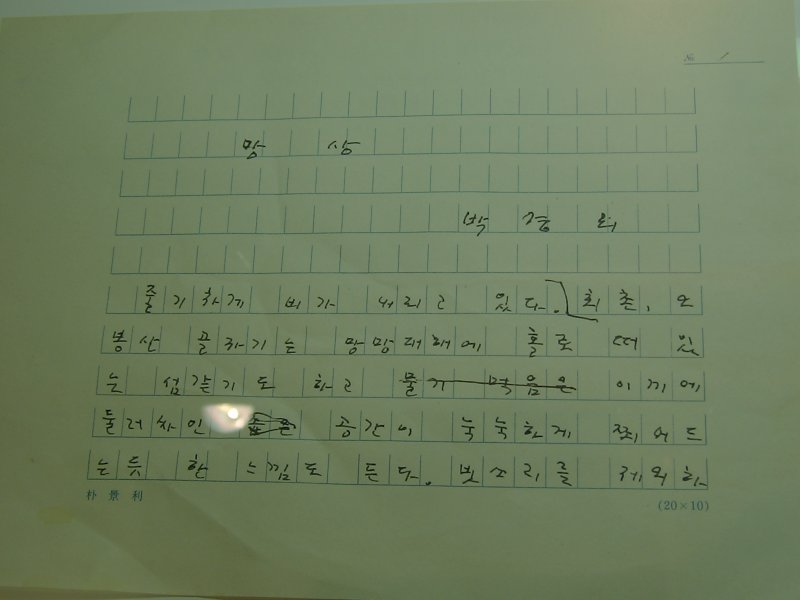 № 1
망 상
박 경 리
줄기차게 비가 내리고 있다. 회촌, 오
봉산 골짜기는 망망대해에 홀로 떠 있
는 섬 같기도 하고 물기 먹음은 이끼에
둘러싸인 공간이 눅눅하게 찌어드
는 듯 한 느낌도 든다. 빗소리를 제외하
朴景利
(20×10)